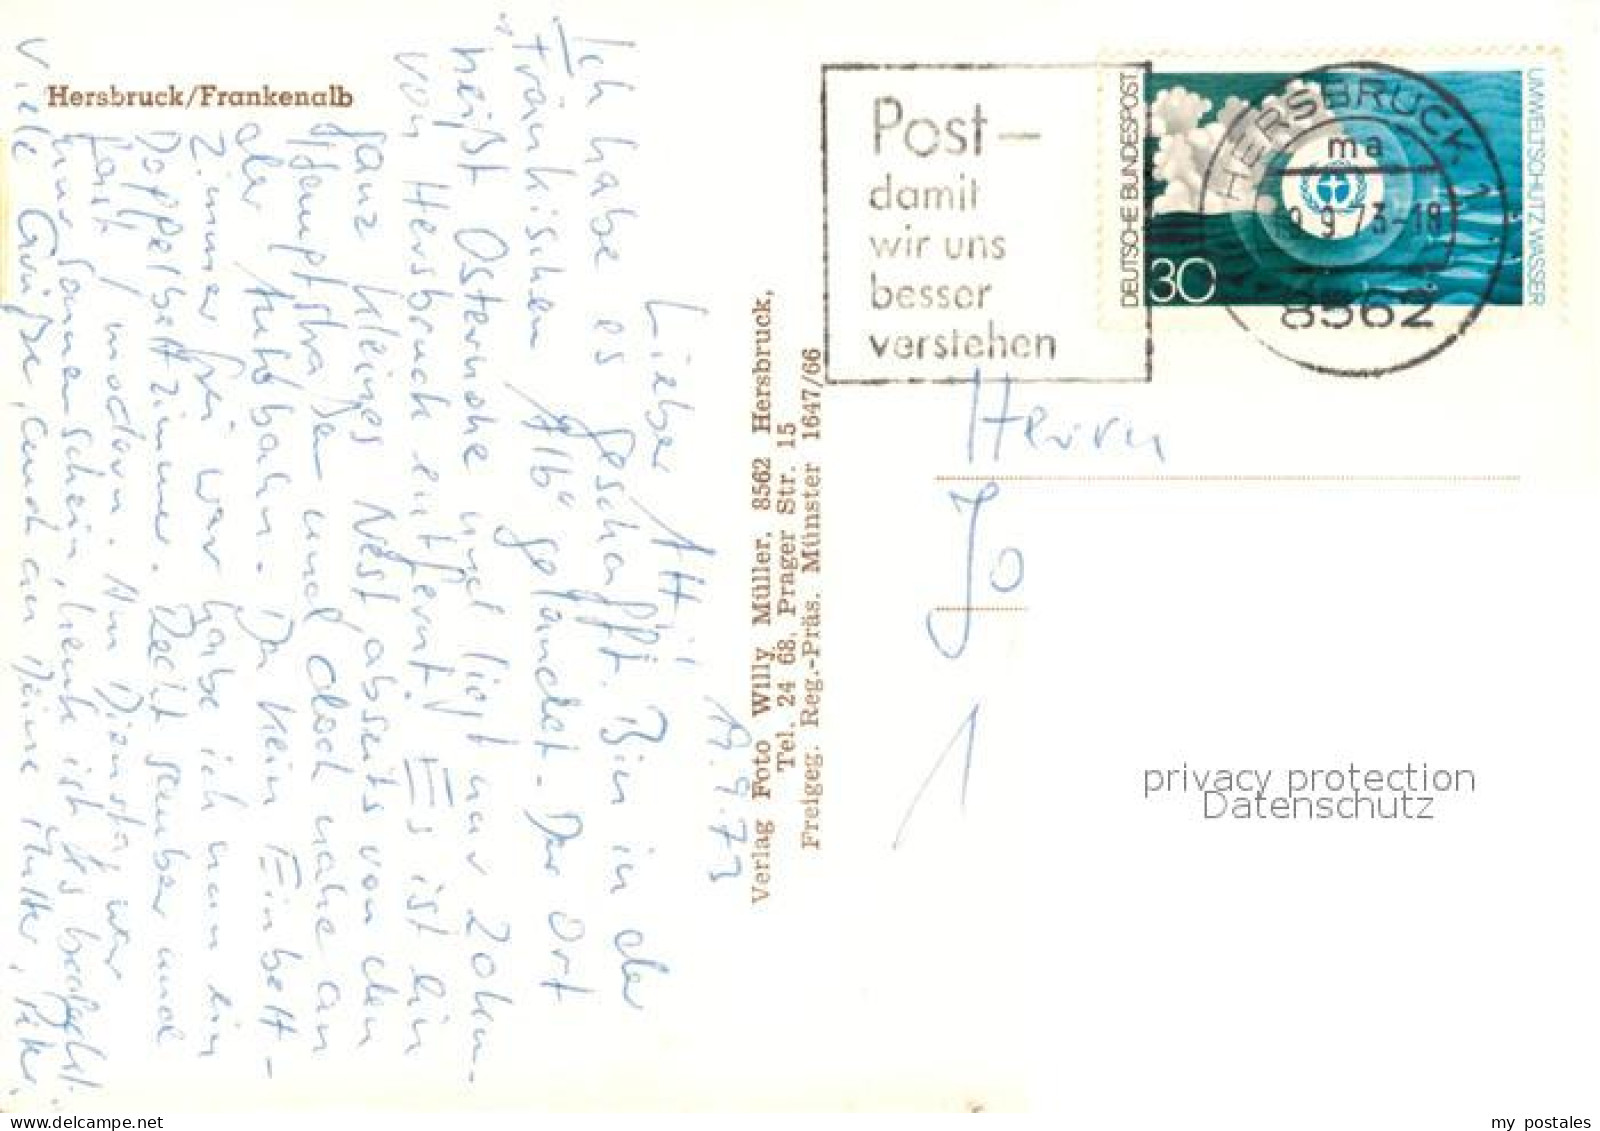 Hersbruck/Frankenalb
19.9.73
Lieber Atti!
Ich habe es geschafft. Bin in der
"Fränkischen Alb" gelandet. Der Ort
heißt Osternohe und liegt nur 20 km
von Hersbruck entfernt. Es ist ein
ganz kleines Nest abseits von den
Hauptstraßen und doch nahe an
der Autobahn. Da kein Einbett-
Zimmer frei war habe ich nun ein
Doppelbettzimmer. Recht sauber und
fast modern. Am Dienstag war
nur Sonnenschein, heute ist es bedeckt.
Viele Grüße, auch an Deine Mutter,
Verlag Foto Willy Müller, 8562 Hersbruck,
Tel. 24 68, Prager Str. 15
Freigeg. Reg.-Präs. Münster 1647/66
Post-
damit
wir uns
besser
verstehen
DEUTSCHE BUNDESPOST
30
UMWELTSCHUTZ WASSER
HERSBRUCK 1
ma
9.9.73-18
8562
Herrn
Jo
1
privacy protection
Datenschutz
my postales